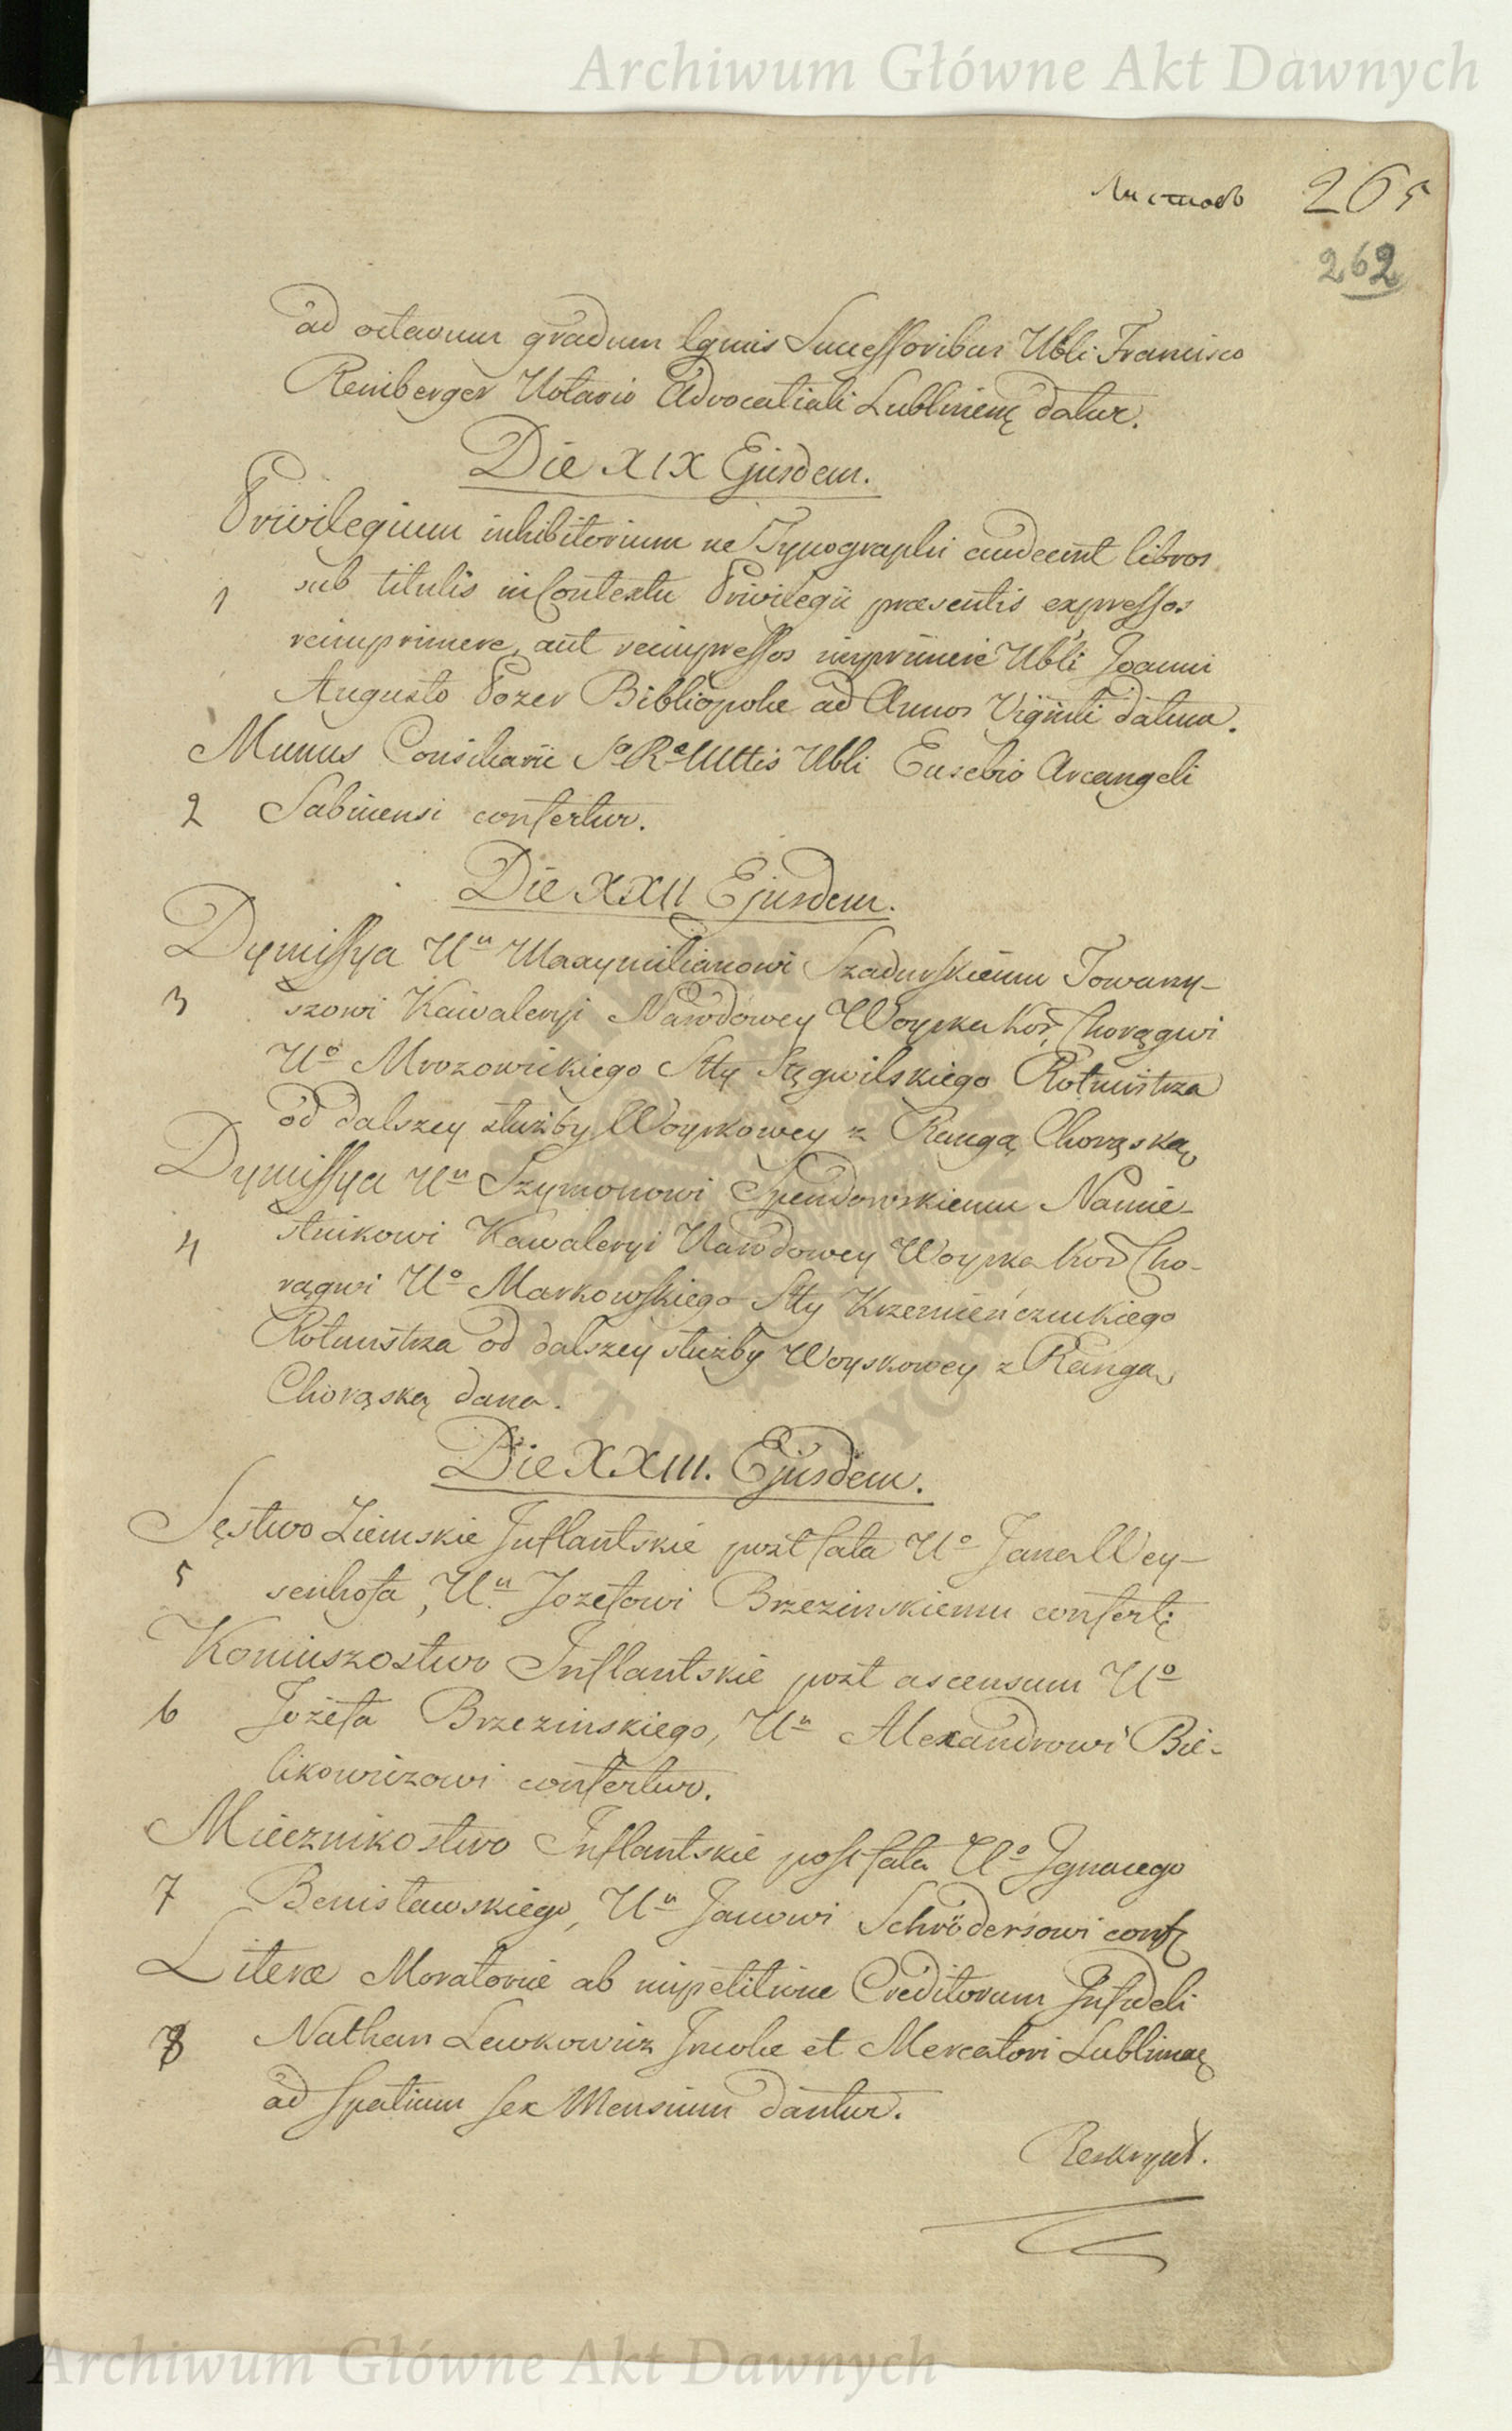 Archiwum Główne Akt Dawnych
Листовъ 265
262
ad octavum gradum Lgmis Successoribus Ubli Francisco
Reinberger Notario Advocatiali Lublinens datur.
Die XIX Ejusdem.
Privilegium inhibitorium ne Typographi audeant libros
1 sub titulis in Contextu Privilegii præsentis expressos
reimprimere, aut reimpressos Ubli Joanni
Augusto Pozer Bibliopolæ ad Annos Viginti datum.
Munus Consiliarii Sæ Ræ Mttis Ubli Eusebio Arcangeli
2 Sabinensi confertur.
Die XXII Ejusdem.
Dymissya Uu Maxymilianowi Szadurskiemu Towarzy-
3 szowi Kawaleryi Narodowey Woyska Kor, Chorągwi
Uo Mrozowickiego Stty Stęgwilskiego Rotmistrza
od dalszey służby Woyskowey z Rangą Chorąską
Dymissya Uu Szymonowi Spendowskiemu Namie-
4 stnikowi Kawaleryi Narodowey Woyska Kor Cho-
rągwi Uo Markowskiego Stty Krzemieńczuckiego
Rotmistrza od dalszey służby Woyskowey z Rangą
Chorąską dana.
Die XXIII. Ejusdem.
Sęstwo Ziemskie Inflantskie post fata Uo Jana Wey-
5 senhofa, Uu Jozefowi Brzezinskiemu confert:
Koniuszostwo Inflantskie post ascensum Uo
6 Jozefa Brzezinskiego, Uu Alexandrowi Bie-
likowiczowi confertur.
Miecznikostwo Inflantskie post fata Uo Ignacego
7 Benisławskiego, Uu Janowi Schrödersowi conf
Literæ Moratoriæ ab impetitione Creditorum Infideli
8 Nathan Lewkowicz Incolæ et Mercatori Lublinens
ad spatium sex Mensium dantur.
Reskrypt.
Archiwum Główne Akt Dawnych